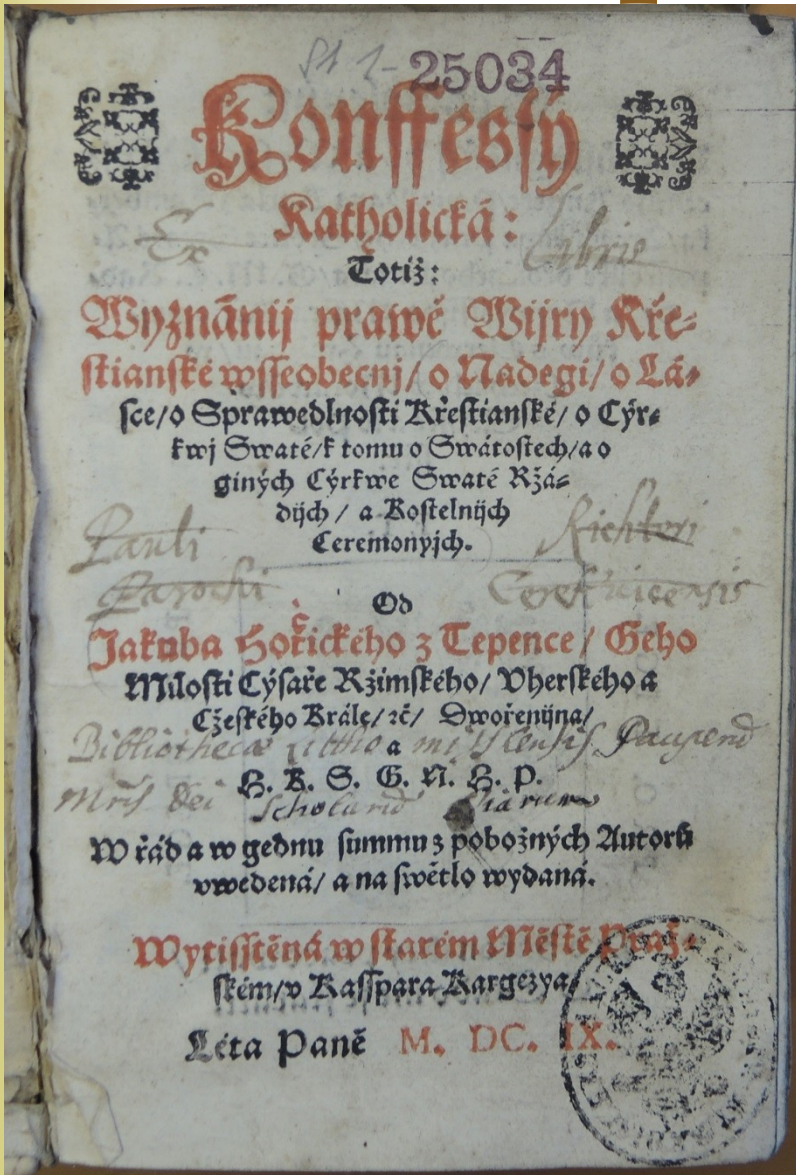 25034
Konffessý
Katholická:
Ex Libris
Totiž:
Wyznánij prawé Wijry Kře-
stianské wsseobecnj / o Nadegi / o Lá-
sce / o Sprawedlnosti Křestianské / o Cýr-
kwj Swaté / k tomu o Swátostech / a o
giných Cýrkwe Swaté Ržá-
dijch / a Kostelnijch
Ceremonyjch.
Pauli Richteri
Parochi
Od
Jakuba Hořčického z Tepence / Geho
Milosti Cýsaře Ržimského / Vherského a
Cžeského Krále / ꝛč / Dwořenijna /
Bibliothecæ
a
H. K. S. G. N. H. P.
Mris Dei Scholarū Piarum
W řád a w gednu summu z pobožných Autorů
vwedená / a na swětlo wydaná.
Wytisstěná w starém Městě Praž-
ském / v Kasspara Kargezya /
Léta Páně M. DC. IX.